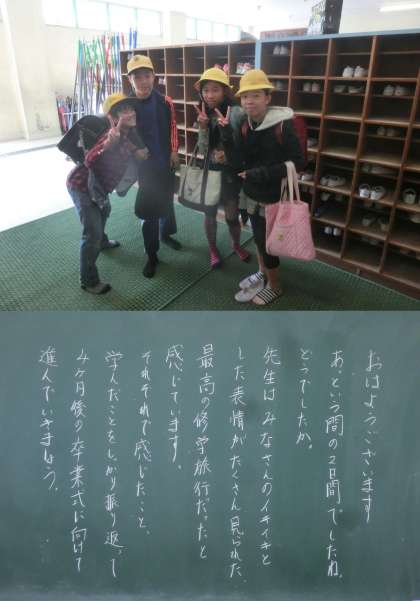 おはようございます
あっという間の2日間でしたね。
どうでしたか。
先生はみなさんのイキイキと
した表情がたくさん見られた、
最高の修学旅行だったと
感じています。
それぞれで感じたこと、
学んだことをしっかり振り返って
4ヶ月後の卒業式に向けて
進んでいきましょう。